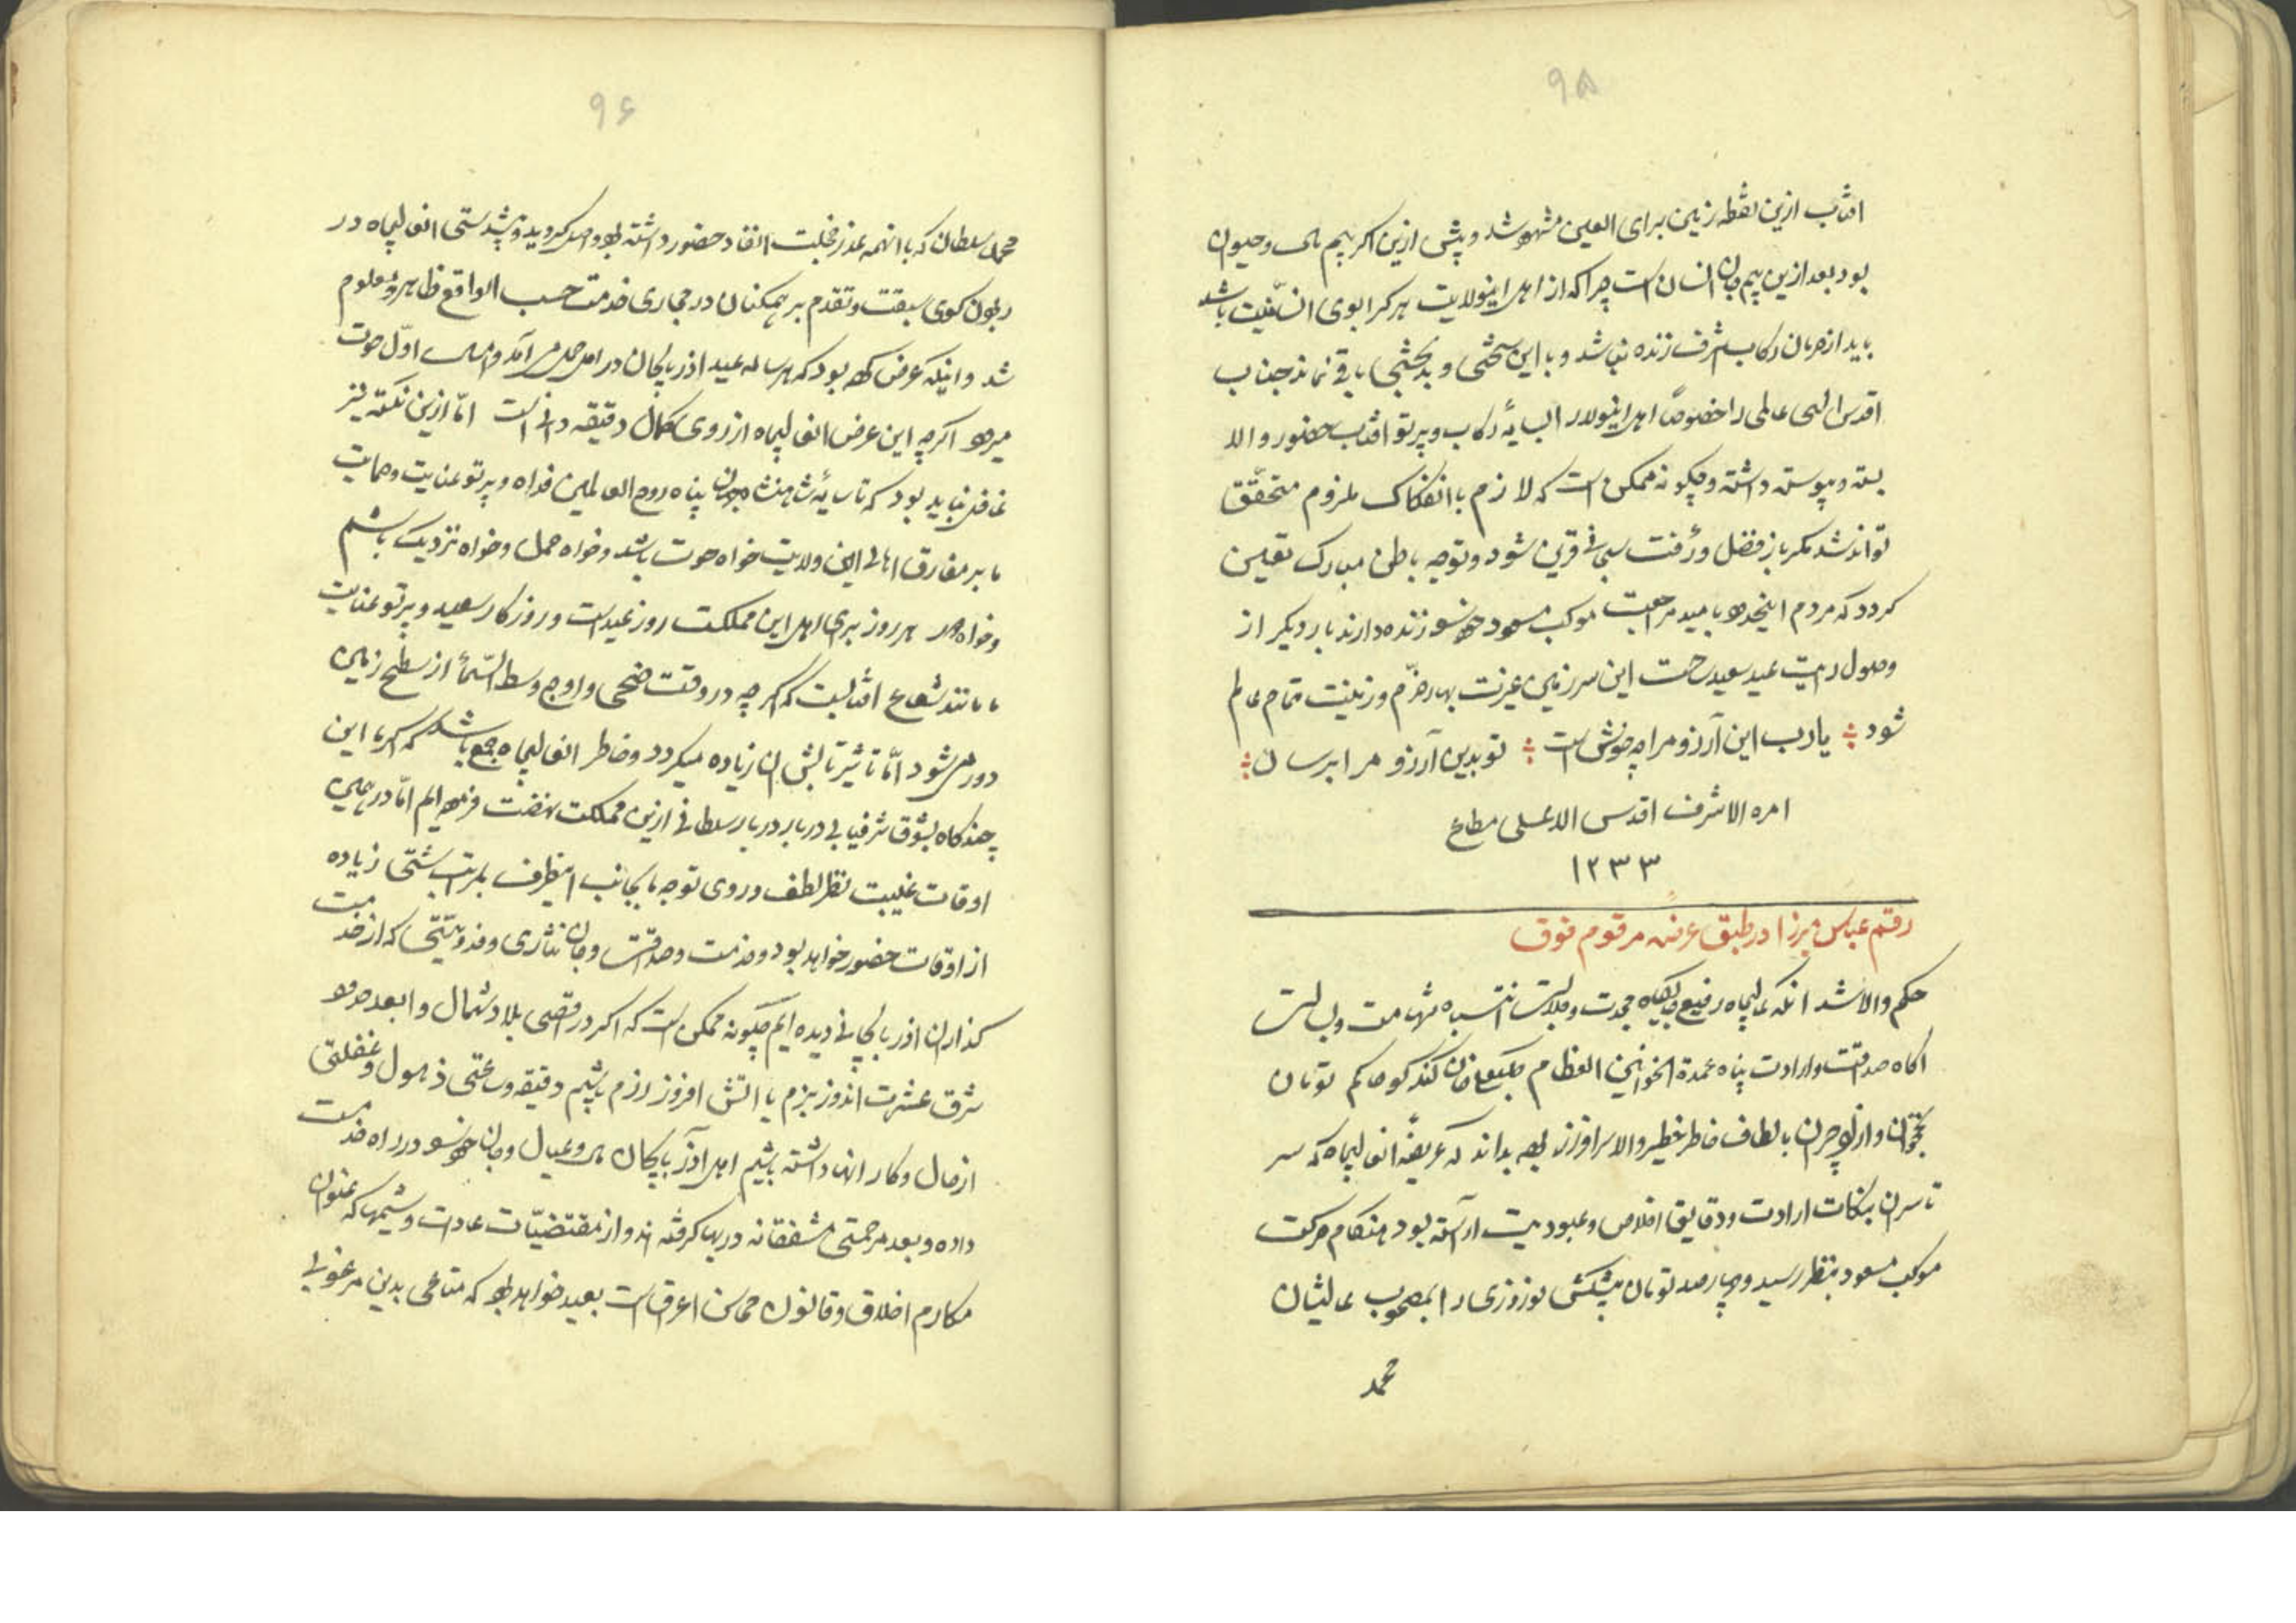 ۹۵
افتاب ازین نقطه زمین برای العین مشهود شد و پیش ازین اکر بیم مال و حیوان
بود بعد ازین بیم جان انسان است چرا که از اهل اینولایت هر کرا بوی انسانیت باشد
باید از حرمان رکاب اشرف زنده نباشد و با این سختی و بدبختی باقی نماند جناب
اقدس الهی عالمی را خصوصاً اهل اینولا را بسایهٔ رکاب و پرتو افتاب حضور والا
بسته و پیوسته داشته و چکونه ممکن است که لازم با انفکاک ملزوم متحقّق
تواند شد مکر باز فضل و رأفت سبحانی قرین شود و توجه باطن مبارک تعین
کردد که مردم اینحدود بامید مراجعت موکب مسعود خود را زنده دارند بار دیکر از
وصول رایت عید سعید ساحت این سرزمین غیرت بهار خرّم و زینت تمام عالم
شود ÷ یارب این آرزو مرا چه خوش است ÷ تو بدین آرزو مرا برسان ÷
امره الاشرف اقدس الاعلی مطاع
۱۲۳۳
رقم عباس میرزا در طبق عریضه مرقوم فوق
حکم والا شد انکه عالیجاه رفیع جایکاه مجدت و جلالت انتباه شهامت و بسالت
اکاه صداقت و ارادت پناه عمدة الخوانین العظام کلبعلی خان کنکرلو حاکم تومان
نخجوان و ازلوجران بالطاف خاطر خطیر والا سرافراز بوده بداند که عریضهٔ انعالیجاه که سر
تا سر ان بنکات ارادت و دقایق اخلاص و عبودیت اراسته بود هنکام حرکت
موکب مسعود بنظر رسید و چهارصد تومان پیشکش نوروزی را بمصحوب عالیشان
محمد
۹۶
محمد سلطان که با انهمه عذر خجلت انفاد حضور داشته بود واصل کردید و پیشدستی انعالیجاه در
ربودن کوی سبقت و تقدم بر همکنان در مجاری خدمت حسب الواقع ظاهر و معلوم
شد و اینکه عرض کرده بود که هر ساله عید اذربایجان در اول حمل می‌آمد و امسال اوّل حوت
میرود اکرچه این عرض انعالیجاه از روی کمال دقیقه دانی است امّا ازین نکته نیز
غافل نباید بود که تا سایهٔ شاهنشاه جهان پناه روح العالمین فداه و پرتو عنایت و حمایت
ما بر مفارق اهالی این ولایت خواه حوت باشد و خواه حمل و خواه نزدیک باشیم
و خواه دور هر روز برای اهل این مملکت روز عید است و روزکار سعید و پرتو عنایت
ما مانند شعاع افتابست که اکرچه در وقت ضحی و اوج وسط السّمأ از سطح زمین
دور میشود امّا تاثیر تابش ان زیاده میکردد و خاطر انعالیجاه جمع باشد که اکر ما این
چند کاه بشوق شرفیابی دربار دربار سلطانی ازین مملکت نهضت فرموده‌ایم امّا در همین
اوقات غیبت نظر لطف و روی توجه ما بجانب اینطرف بمراتب شتی زیاده
از اوقات حضور خواهد بود و خدمت و صداقت و جان نثاری و فدویتی که از خدمت
کذاران اذربایجانی دیده ایم چکونه ممکن است که اکر در اقصی بلاد شمال و ابعد حدود
شرق عشرت اندوز بزم یا اتش افروز رزم باشیم دقیقه و ساعتی ذهول و غفلتی
از حال و کار انها داشته باشیم اهل اذربایجان مال و عیال و جان خود را در راه خدمت
داده و بعد مرحمتی مشفقانه در بها کرفته اند و از مقتضیّات عادات و شیمها که عنوان
مکارم اخلاق و قانون محاسن اعراق است بعید خواهد بود که متاعی بدین مرغوبی